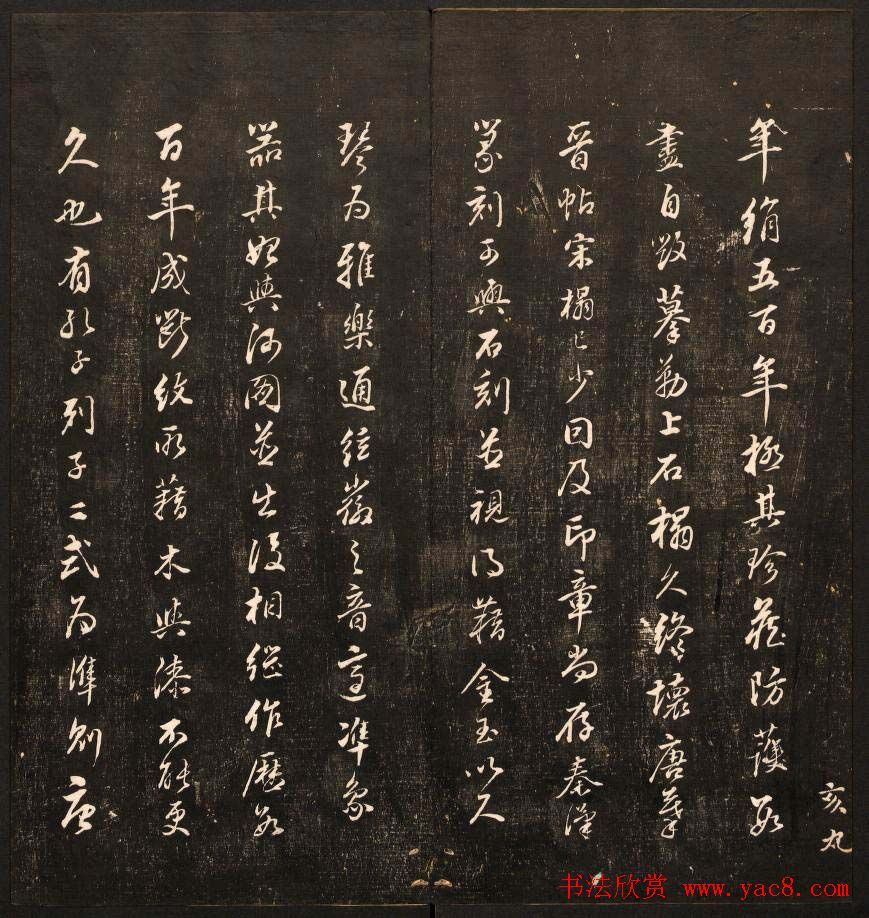 年絹五百年極其珍藏防護數
盡自毀摹勒上石榻久終壞唐摹
晉帖宋榻已少因及印章尚存秦漢
篆刻可與石刻並視乃藉金玉以久
琴為雅樂通絃徽之音準象
器其始與河圖並出後相繼作歷數
百年成斷紋所藉木與漆不能更
久也有孔子列子二式為準則唐
亥九
书法欣赏 www.yac8.com